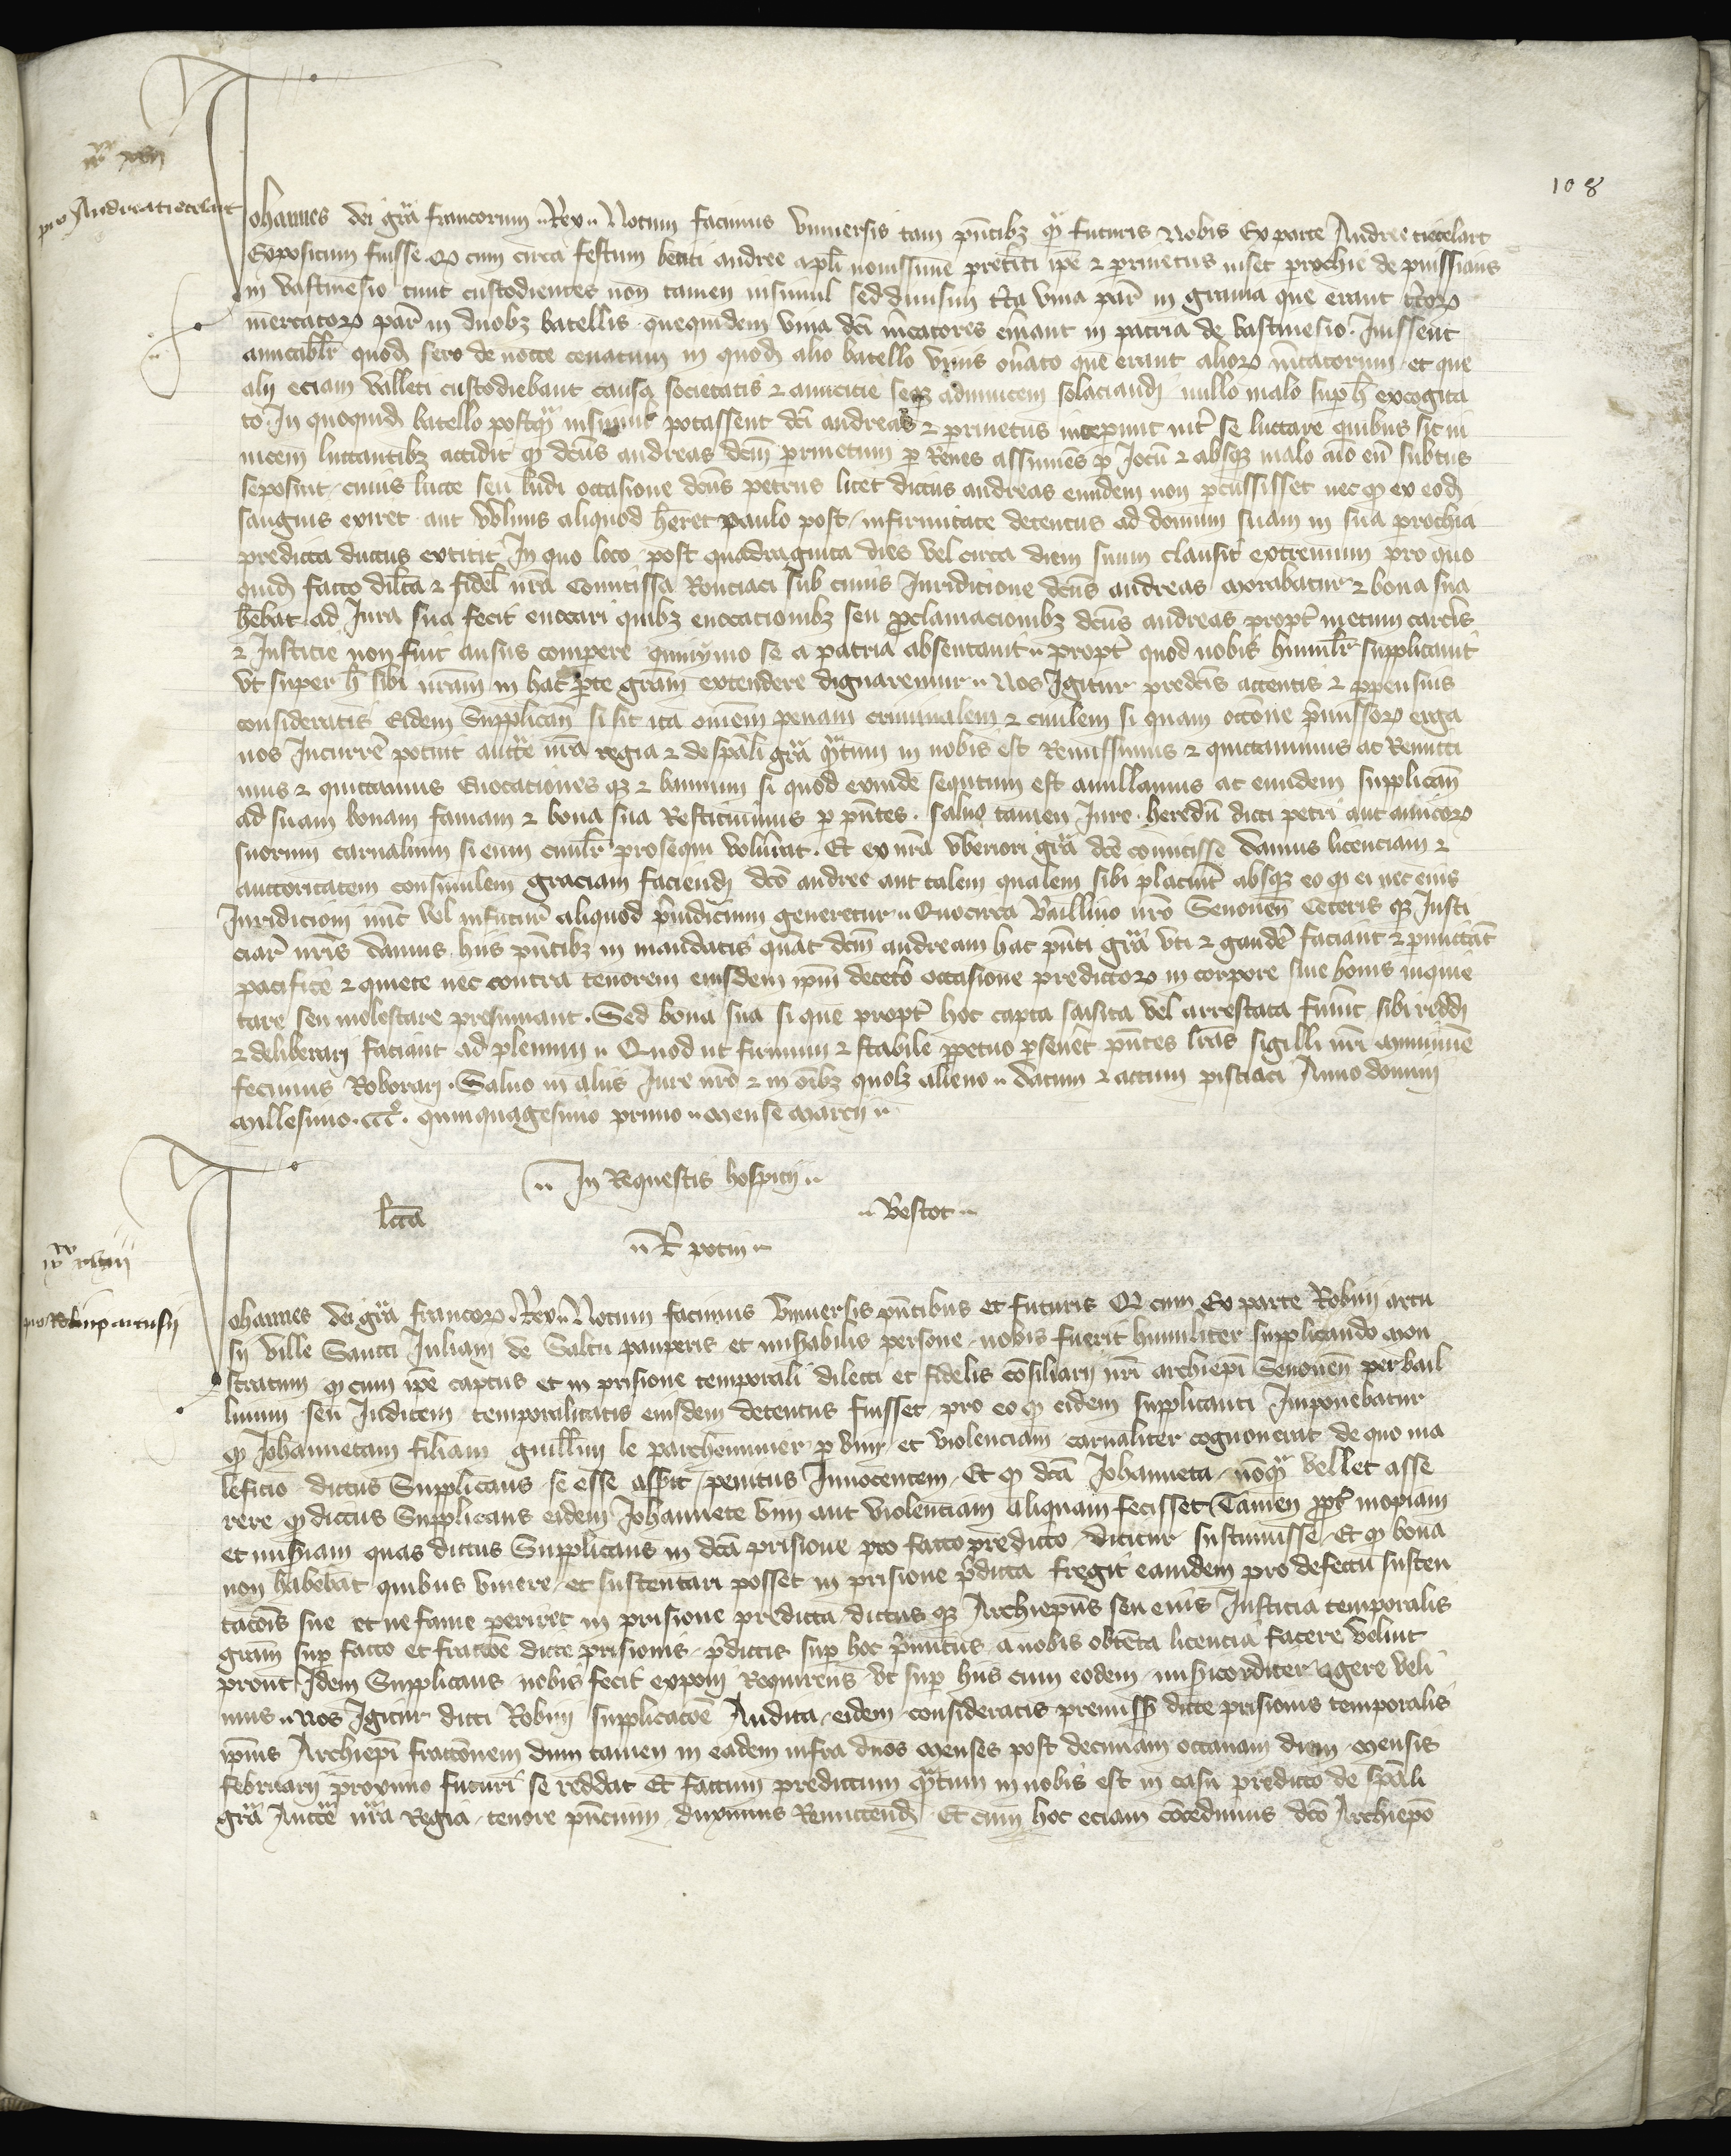 108
pro Andrea tiecelart
Johannes dei gra francorum Rex Notum facimus Universis tam pntibz qm futuris Nobis Ex parte Andree tiecelart
Expositum fuisse q cum circa festum beati andree apli novissime preteriti ipe et perrinetus uiset prochie de puissiaus
in vastinesio tunc custodientes non tamen insimul sed divisim cta vina par in gravia que erant ctor
mercator par in duobz batellis quequidem vina dci mcatores emant in patria de vastinesio Iuissent
amicablr quod sero de nocte cenatum in quod alio batello vinis onato que erant alior mcatorum et que
alij eciam valleti custodiebant causa societatis et amicicie seqz adinvicem solaciand nullo malo sup h excogita
to In quoquid batello postqm insimul potassent dci andreas et perrinetus inceperunt int se luctare quibus sic in
vicem luctantibz accidit q dcus andreas dcm perrinetum p Renes assumens p Jocu et absqz malo aio eu subtus
se posuit cuius lucte seu ludi occasione dcus petrus licet dictus andreas eundem non percussisset nec q ex eod
sanguis exiret aut vulnus aliquod heret paulo post infirmitate detentus ad domum suam in sua prochia
predicta ductus extitit In quo loco post quadraginta dies vel circa diem suum clausit extremum pro quo
quid facto dilta et fidel nra Comitissa Ronciaci sub cuius Juridicione dcus andreas morabatur et bona sua
hebat ad Jura sua fecit evocari quibz evocacionibz seu proclamacionibz dcus andreas propt metum carceris
et Justicie non fuit ausus comperere quinymo se a patria absentavit propt quod nobis humilr supplicavit
ut super h sibi nram in hac pte gram extendere dignaremur Nos Igitur predcis attentis et ppensius
consideratis Eidem Supplican si sit ita omem penam criminalem et civilem si quam occone pmissor erga
nos Incurre potuit aucte nra regia et de spali gra qtum in nobis est Remissimus et quictavimus ac Remitti
mus et quictamus Evocationes qz et bannum si quod exinde sequtum est anullamus ac eundem supplican
ad suam bonam famam et bona sua Restituimus p pntes salvo tamen Jure heredu dicti petri aut amicor
suorum carnalium si eum civilr prosequi volurit Et ex nra uberiori gra dce comitisse damus licenciam et
auctoritatem consimilem graciam faciend dco andree aut talem qualem sibi placuit absqz eo q ei nec eius
Juridicioni nunc vel in futur aliquod pudicium generetur Quocirca baillivo nro Senonen Ceteris qz Justi
ciar nris damus hiis pntibz in mandatis quat dcm andream hac pnti gra uti et gaude faciant et pmittat
pacifice et quiete nec contra tenorem eiusdem ipm decetero occasione predictor in corpore sive bonis inquie
tare seu molestare presumant Sed bona sua si que propt hoc capta saisita vel arrestata fuint sibi reddi
et deliberari faciant ad plenum Quod ut firmum et stabile ppetuo pseveret pntes lras sigilli nri munimine
fecimus Roborari Salvo in aliis Jure nro et in oibz quolz alieno datum et actum pissiaci Anno domini
millesimo ccc quinquagesimo primo mense marcij
In Requestis hospicij
lecta Bescot
R potin
pro Robino artusij
Johannes dei gra francor Rex Notum facimus Universis pntibus et futuris Q cum Ex parte Robini artu
sij ville Sancti Juliani de Saltu pauperis et misabilis persone nobis fuerit humiliter supplicando mon
stratum q cum ipe captus et in prisione temporali dilecti et fidelis cosiliarij nri archiepi Senonen per bail
livum seu Judicem temporalitatis eiusdem detentus fuisset pro eo q eidem supplicanti Imponebatur
q Johannetam filiam guillmi le parcheminier p vim et violenciam carnaliter cognoverat de quo ma
leficio dictus Supplicans se esse asserit penitus Innocentem Et q dca Johanneta noqm vellet asse
rere q dictus Supplicans eidem Johannete vim aut violenciam aliquam fecisset Tamen propt inopiam
et misiam quas dictus Supplicans in dca prisione pro facto predicto dicitur sustinuisse Et q bona
non habebat quibus vivere et sustentari posset in prisione pdicta fregit eamdem pro defectu susten
tacois sue et ne fame periret in prisione predicta dictus qz Archiepus seu eius Justicia temporalis
gram sup facto et fractoe dicte prisionis pdictis sup hoc pmitus a nobis obtenta licencia facere velint
prout Idem Supplicans nobis fecit exponi Requirens ut sup hiis cum eodem misicorditer agere veli
mus Nos Igitur dicti Robini supplicacoe Audita eidem consideratis premissis dicte prisionis temporalis
ipius Archiepi fractionem dum tamen in eadem infra duos menses post decimam octavam diem mensis
februarij proximo futuri se reddat Et factum predictum qtum in nobis est in casu predicto de spali
gra Aucte nra Regia tenore pncium duximus Remittend Et cum hoc eciam cocedimus dco Archiepo